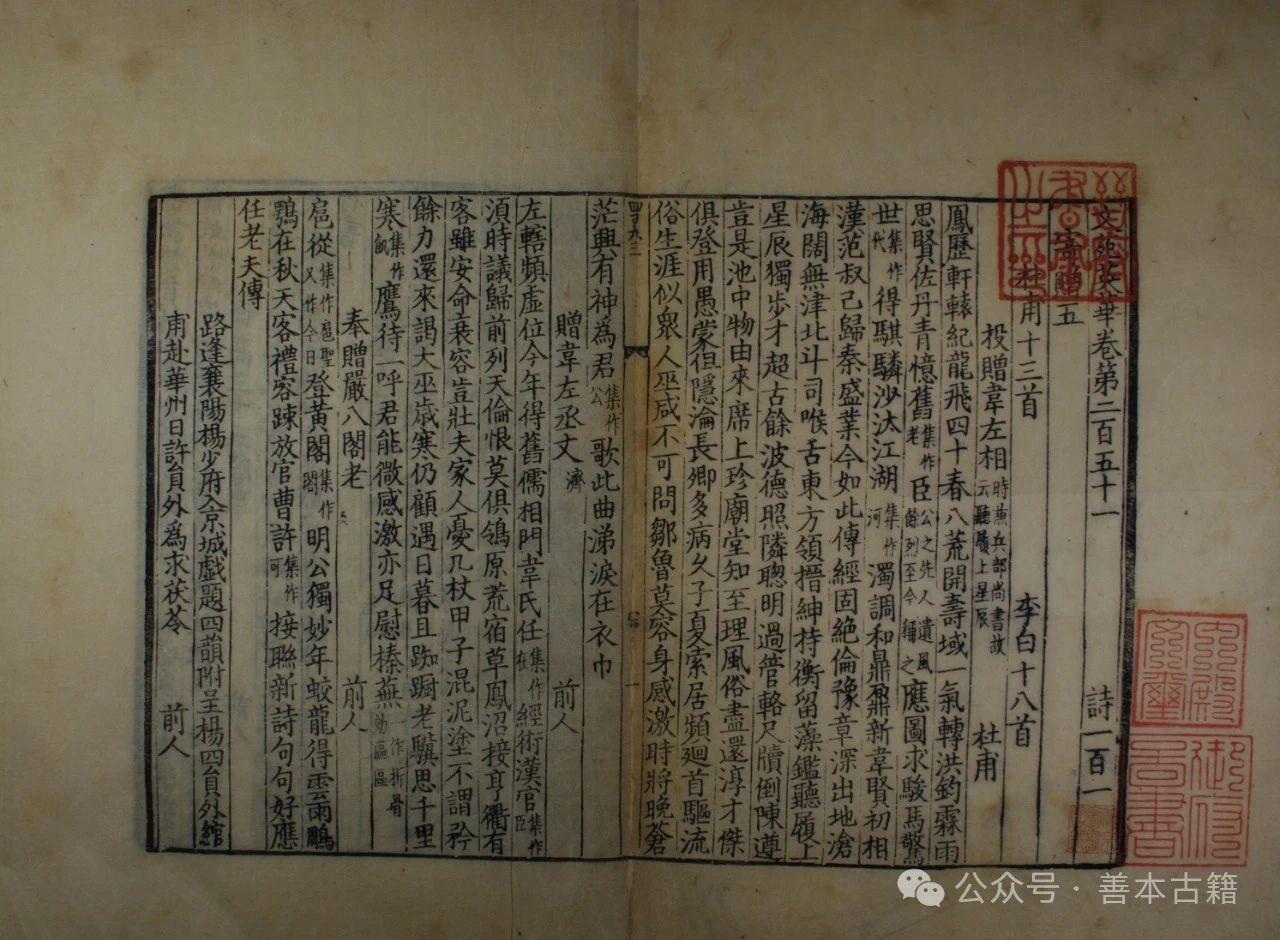 文苑英華卷第二百五十一 詩一百一
寄贈五
杜甫十三首 李白十八首
投贈韋左相時兼兵部尚書故云聽履上星辰 杜甫
鳳歷軒轅紀龍飛四十春八荒開壽域一氣轉洪鈞霖雨
思賢佐丹青憶舊集作老臣公之先人遺風餘烈至今稱之應圖求駿馬驚
世集作代得騏驎沙汰江湖集作河濁調和鼎鼐新韋賢初相
漢范叔己歸秦盛業今如此傳經固絶倫豫章深出地滄
海闊無津北斗司喉舌東方領搢紳持衡留藻鑑聽履上
星辰獨步才超古餘波德照隣聰明過管輅尺牘倒陳遵
豈是池中物由來席上珍廟堂知至理風俗盡還淳才傑
俱登用愚蒙但隱淪長卿多病久子夏索居頻廻首驅流
俗生涯似衆人巫咸不可問鄒魯莫容身感激時將晚蒼
四百九三
一
茫興有神為君集作公歌此曲涕淚在衣巾
贈韋左丞丈濟 前人
左轄頻虛位今年得舊儒相門韋氏任集作在經術漢官集作臣
須時議歸前列天倫恨莫俱鴒原荒宿草鳳沼接亨衢有
客雖安命衰容豈壯夫家人憂几杖甲子混泥塗不謂矜
餘力還來謁大巫歲寒仍顧遇日暮且踟蹰老驥思千里
寒集作飢鷹待一呼君能微感激亦足慰榛蕪一作折骨効區區
奉贈嚴八閣老 前人
扈從集作扈聖又作今日登黄閣集作閤明公獨妙年蛟龍得雲雨鵰
鶚在秋天客禮容踈放官曹許集作可接聯新詩句句好應
任老夫傳
路逢襄陽楊少府入京城戲題四韻附呈楊四員外綰
甫赴華州日許員外為求茯苓 前人
公众号 · 善本古籍